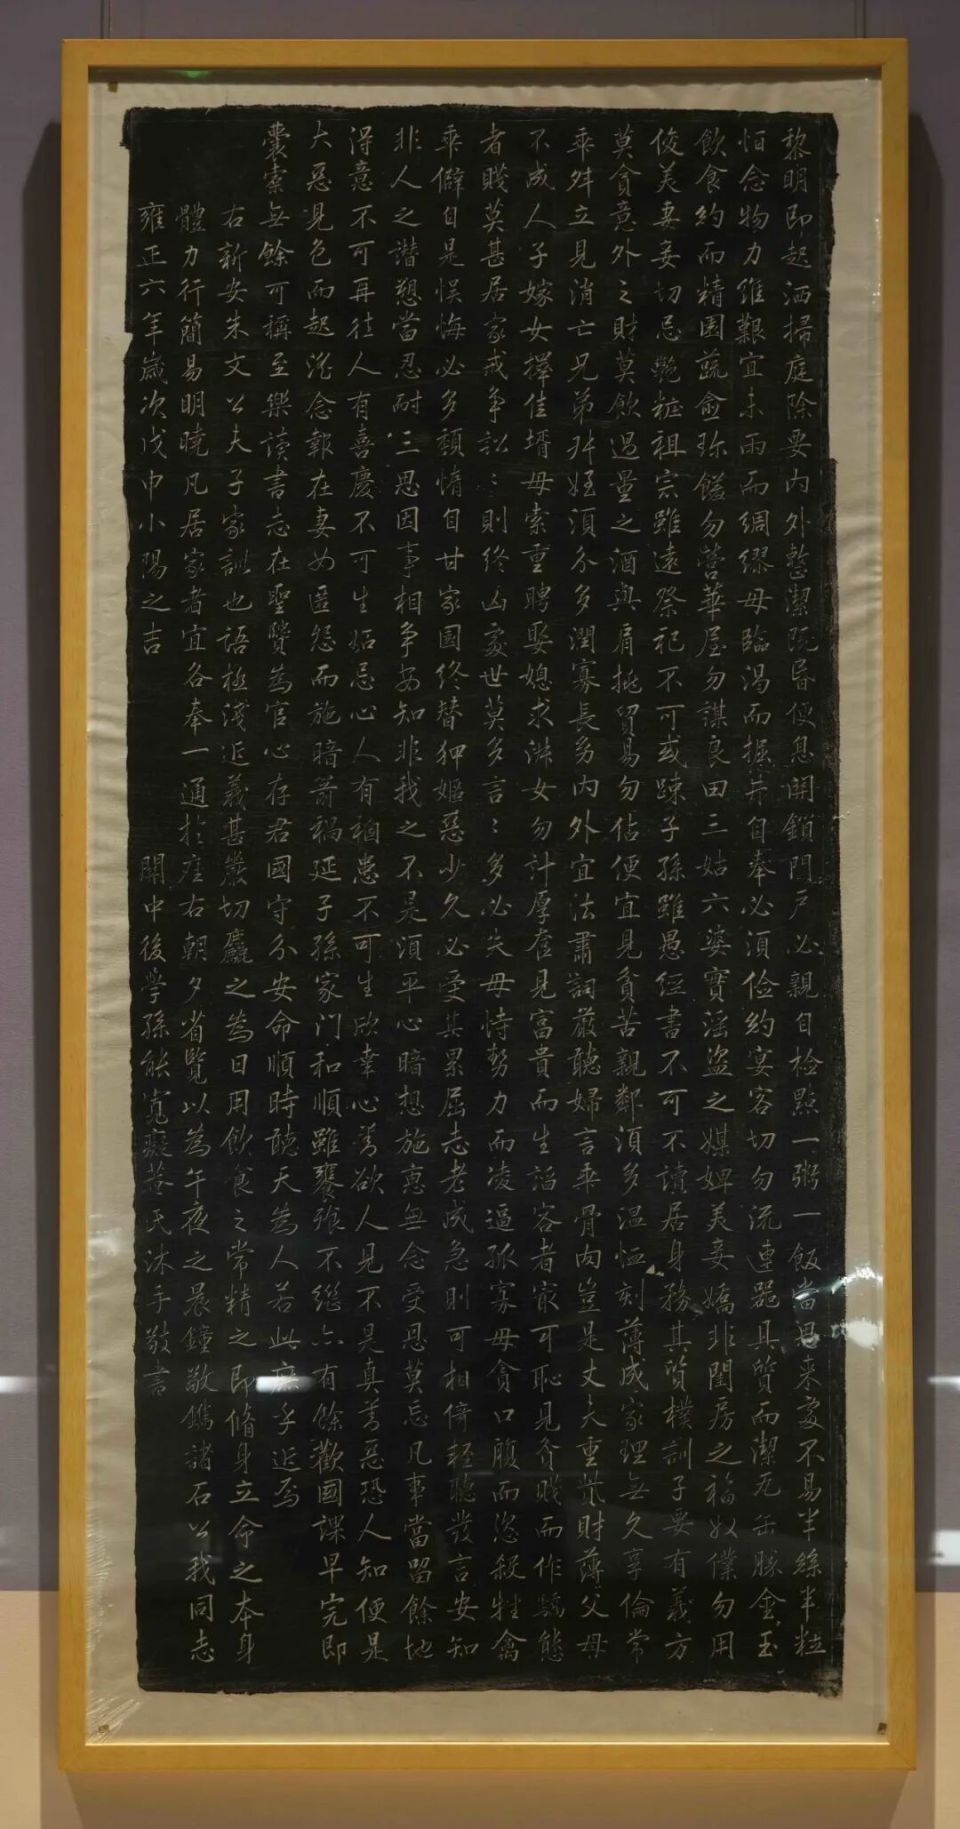 黎明即起洒掃庭除要內外整潔既昏便息關鎖門戶必親自檢點一粥一飯當思来處不易半絲半粒
恒念物力維艱宜未雨而綢繆毋臨渴而掘井自奉必須儉約宴客切勿流連器具質而潔瓦缶勝金玉
飲食約而精園蔬愈珍饈勿營華屋勿謀良田三姑六婆實淫盜之媒婢美妾嬌非閨房之福奴僕勿用
俊美妻妾切忌艷粧祖宗雖遠祭祀不可或踈子孫雖愚經書不可不讀居身務其質樸訓子要有義方
莫貪意外之財莫飲過量之酒與肩挑貿易勿佔便宜見貧苦親鄰須多温恤刻薄成家理無久享倫常
乖舛立見消亡兄弟叔姪須分多潤寡長幼內外宜法肅詞嚴聽婦言乖骨肉豈是丈夫重貲財薄父母
不成人子嫁女擇佳壻毋索重聘娶媳求淑女勿計厚奩見富貴而生謟容者最可恥見貧賤而作驕態
者賤莫甚居家戒爭訟〻則終凶處世莫多言〻多必失毋恃勢力而凌逼孤寡毋貪口腹而恣殺牲禽
乖僻自是悮悔必多頹惰自甘家園終替狎嫗惡少久必受其累屈志老成急則可相倚輕聽發言安知
非人之譖愬當忍耐三思因事相爭安知非我之不是須平心暗想施惠無念受恩莫忘凡事當留餘地
得意不可再往人有喜慶不可生妬忌心人有禍患不可生欣幸心善欲人見不是真善惡恐人知便是
大惡見色而起淫念報在妻女匿怨而施暗箭禍延子孫家门和順雖饔飧不繼亦有餘歡國課早完即
囊橐無餘可稱至樂讀書志在聖賢為官心存君國守分安命順時聽天為人若此庶乎近焉
右新安朱文公夫子家訓也語極淺近義甚嚴切麤之為日用飲食之常精之即脩身立命之本身
體力行簡易明曉凡居家者宜各奉一通於座右朝夕省覽以為午夜之晨鐘敬鐫諸石公我同志
雍正六年歲次戊申小陽之吉 關中後學孫能寬凝菴氏沐手敬書